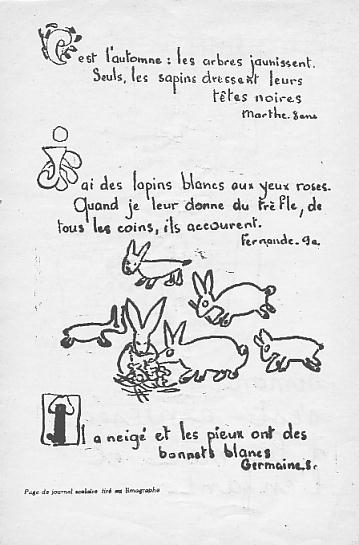 C'est l'automne : les arbres jaunissent.
Seuls, les sapins dressent leurs
têtes noires
Marthe. 8ans
J'ai des lapins blancs aux yeux roses.
Quand je leur donne du trèfle, de
tous les coins, ils accourent.
Fernande. 9a.
Il a neigé et les pieux ont des
bonnets blancs
Germaine. 8.
Page de journal scolaire tiré au limographe